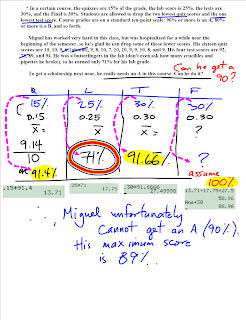 In a certain course, the quizzes are 15% of the grade, the lab score is 25%, the tests are
30%, and the Final is 30%. Students are allowed to drop the two lowest quiz scores and the one
lowest test score. Course grades are on a standard ten-point scale: 90% or more is an A, 80%
or more is a B, and so forth.
Miguel has worked very hard in this class, but was hospitalized for a while near the
beginning of the semester, so he's glad he can drop some of those lower scores. His sixteen quiz
scores are 10, 10,
and 9. His four test scores are 92,
89, and 94. He was a butterfingers in the lab (don't even ask how many crucibles and
pipettes he broke), so he earned only 71% for his lab grade.
Can he get a
90?
To get a scholarship next year, he really needs an A in this course. Can he do it?
Q L T F
15% 25% 30% 30%
0.15 0.25 0.30 0.30
x̄ = x̄ = ?
9.14
10 71% 91.66% ?
91.4% assume
100%
.15*91.4
13.71
.25*71
17.75
27.49998
13.71+17.75+27.5
58.96
Ans+30
88.96
∴ Miguel unfortunately
Cannot get an A (90%).
His maximum score
is 89%.